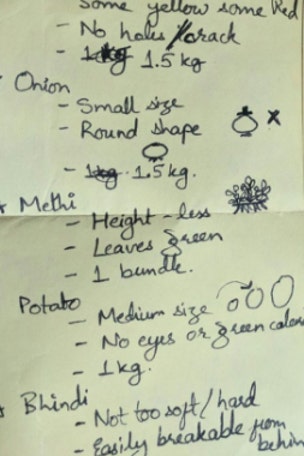 Some yellow some Red
- No holes / crack
- 1kg 1.5 kg
Onion
- Small size
- Round shape
x
- 1kg. 1.5 kg.
* Methi
- Height - less
- Leaves green
- 1 bundle.
Potato
- Medium size
- No eyes or green colour
- 1 kg.
* Bhindi
- Not too soft / hard
- Easily breakable from behin